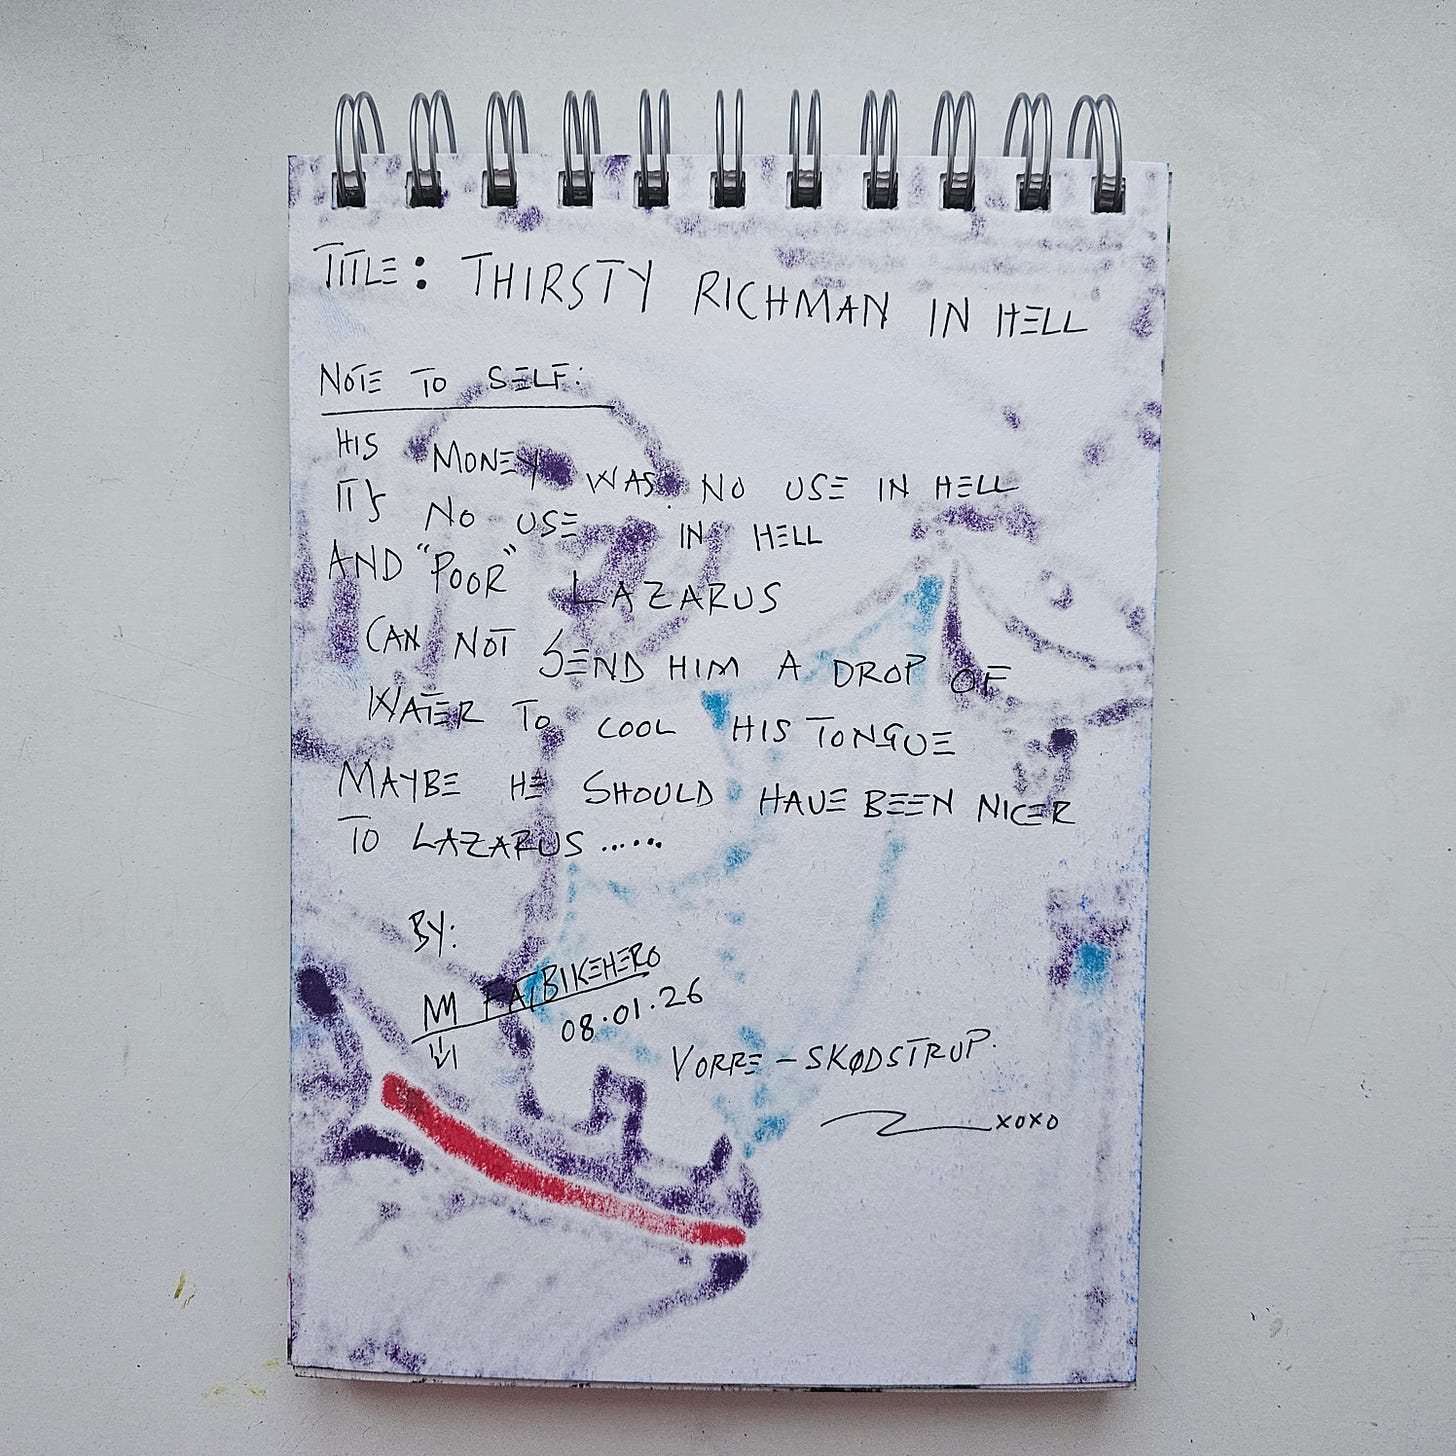 TITLE: THIRSTY RICHMAN IN HELL
NOTE TO SELF:
HIS MONEY WAS NO USE IN HELL
IT'S NO USE IN HELL
AND "POOR" LAZARUS
CAN NOT SEND HIM A DROP OF
WATER TO COOL HIS TONGUE
MAYBE HE SHOULD HAVE BEEN NICER
TO LAZARUS.....
BY:
FATBIKEHERO
08.01.26
VORRE-SKØDSTRUP.
XOXO